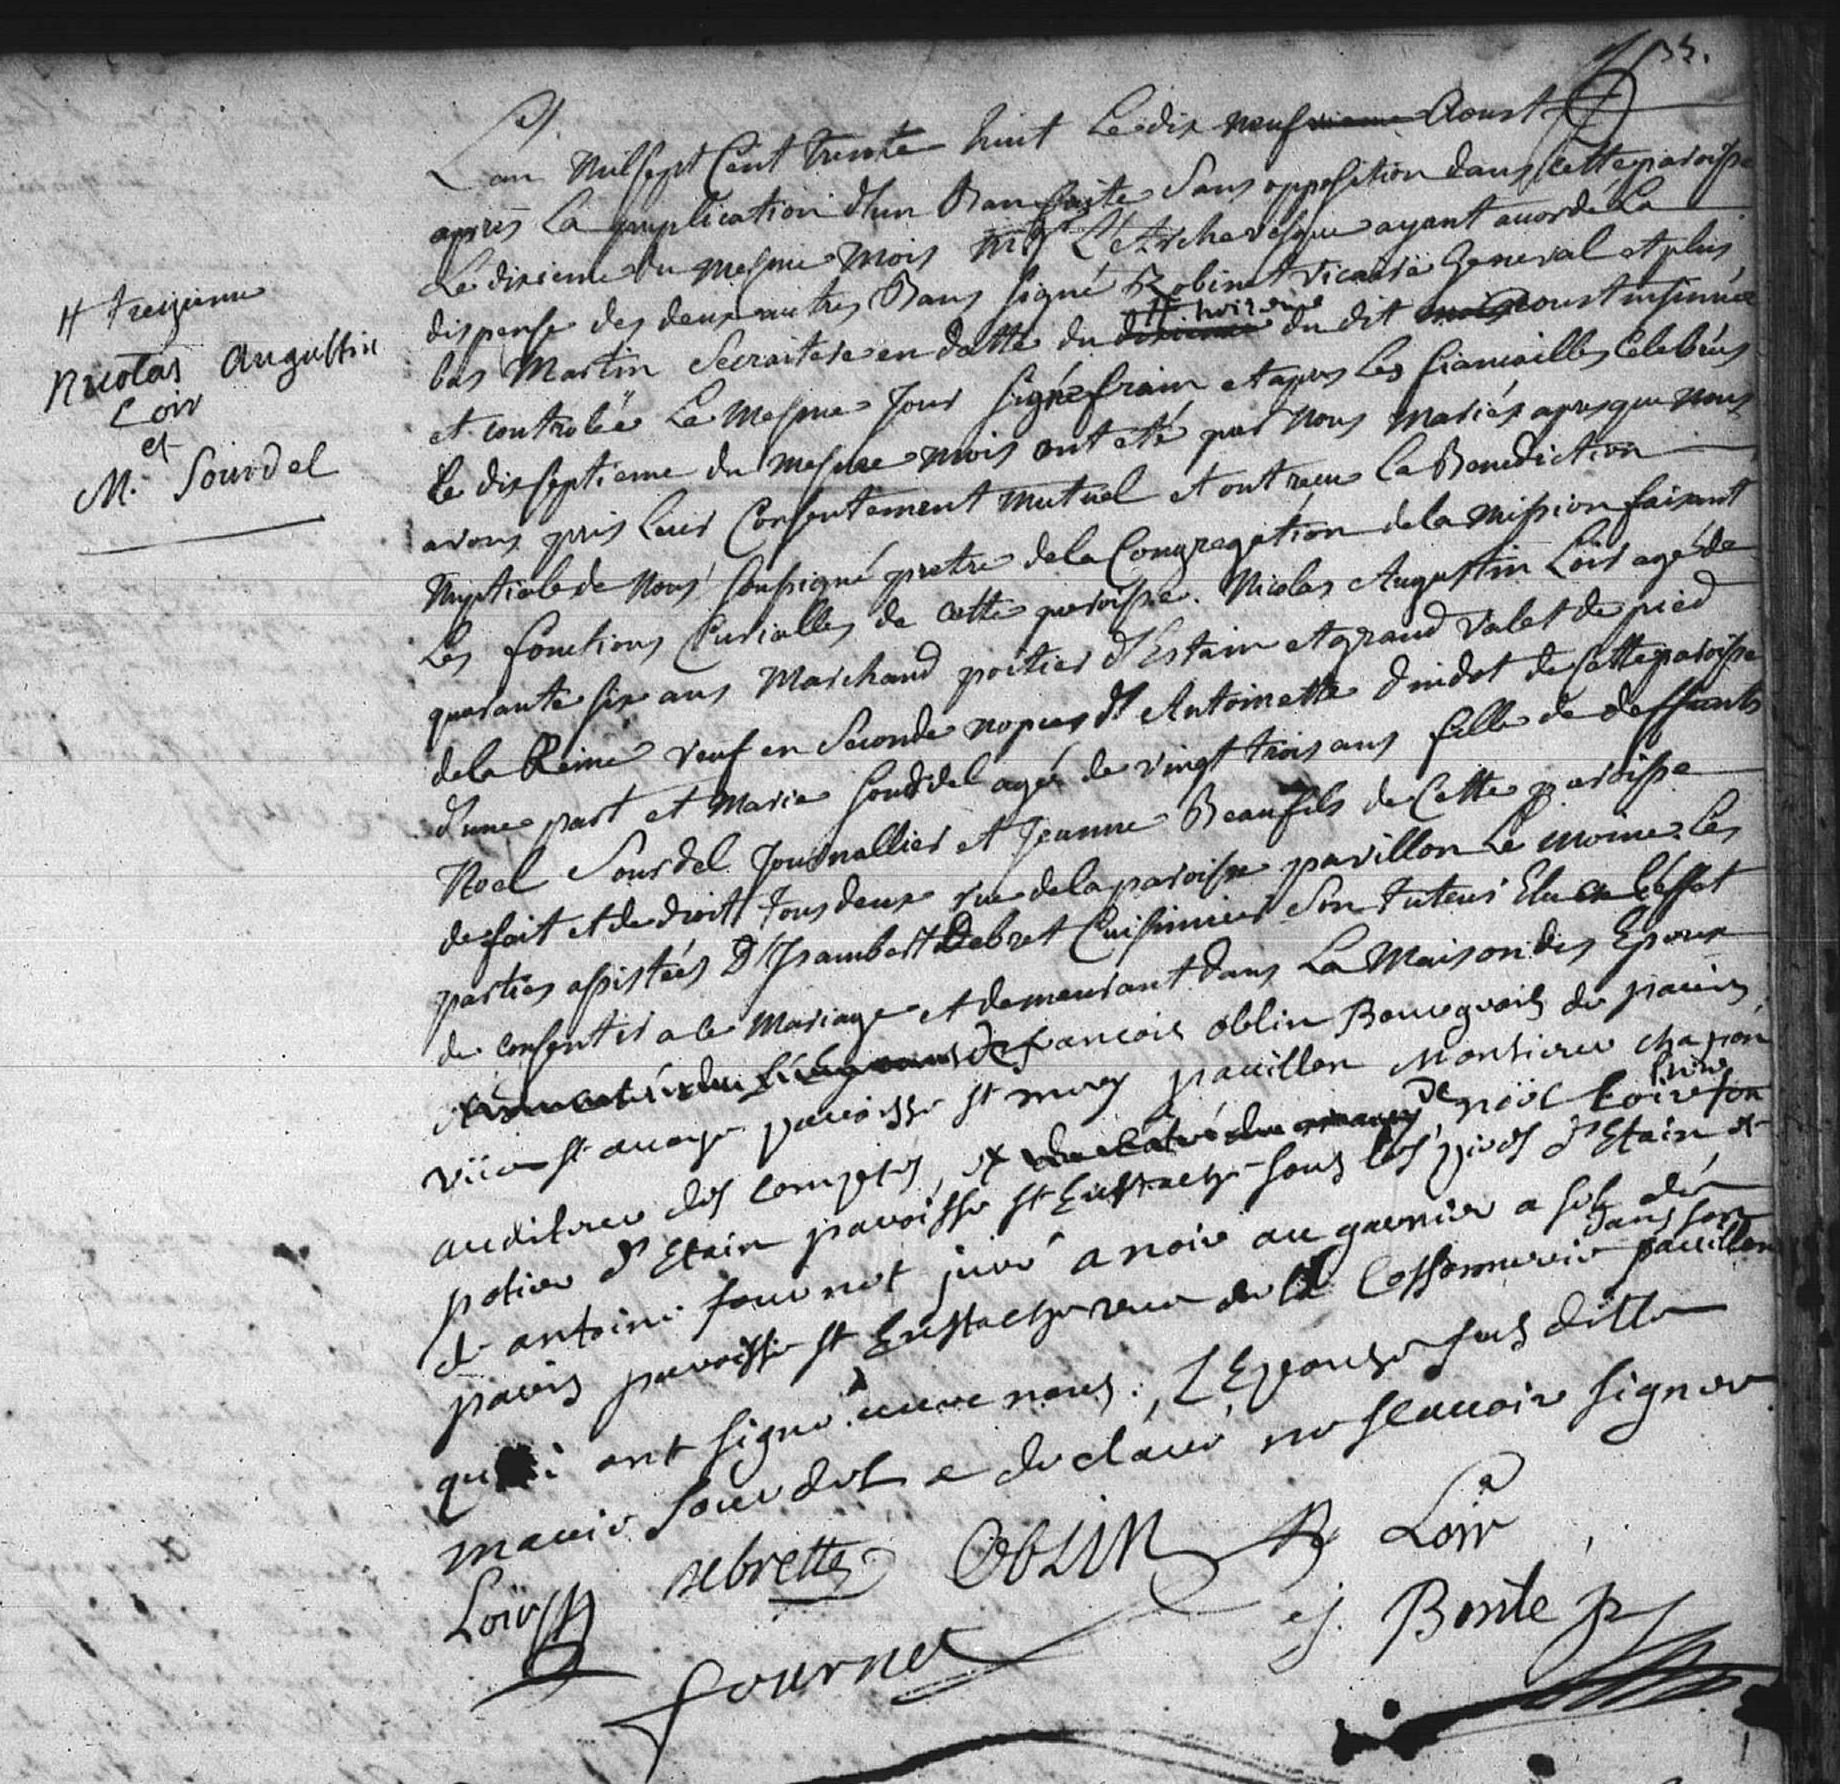 133.
L'an Mil sept Cent trente huit Le dix neuf Aoust
apres La publication d'un Ban faitte Sans opposition dans Cette paroisse
Le dixieme du mesme mois Mgr L'Archevesque ayant accordé La
dispense des deux autres Bans signé Robinet vicaire General et plus
bas Martin Secraitere en datte du treizieme du dit aoust insinuée
et controlée Le Mesme Jour signé frain et apres Les fiancailles Celebrées
Le dix septieme du mesme mois ont eté par Nous Mariés apres que Nous
avons pris Leur Consentement Mutuel et ont receu La Benediction
Nuptiale de Nous soussigné pretre de la Congregation de la Mission faisant
Les fonctions Curialles de cette paroisse. Nicolas Augustin Loir agé de
quarante six ans Marchand poitier d'Estain et grand valet de pied
de la Reine veuf en Seconde nopces d'Antoinette de Cette paroisse
d'une part et Marie Sourdel agée de vingt trois ans fille de deffunts
Noel Sourdel Journallier et Jeanne Beaufils de Cette paroisse
de fait et de droit Tous deux rue de la paroisse pavillon Le Moine. Les
parties assistées d'Isambert Debret Cuisinier Son Tuteur Elu a L'effet
de consentir a ce Mariage et demeurant dans La Maison des Epoux
de francois oblin Bourgeois de paris
rüe st paroisse st mery pavillon Monsieur chapon
auditeur des comptes, et de noël Loire
potier d'Etain paroisse st Eustache sous les piliers d'Etain et
de antoine fournet juré a noir au garnier a sel de
paris paroisse st Eustache rue de la Cossonnerie dans son pavillon
qui ont signé avec nous. L'Epouse sus ditte
marie sourdel a declaré ne scavoir signer
Loir debrette OBLIN Loir
fournet Bonte ptre
# treizieme
Nicolas Augustin
Loir
et
M. Sourdel